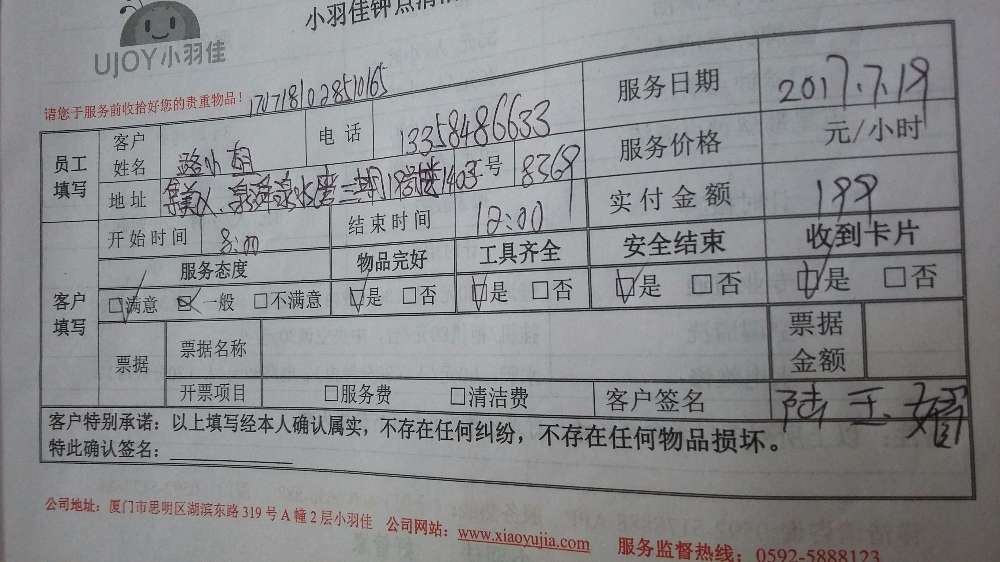 小羽佳钟点清
UJOY小羽佳
请您于服务前收拾好您的贵重物品！ 170718102851065
员工填写 客户姓名 路小姐 电话 13358486633 服务日期 2017.7.19
地址 集美区 三期 1403 号 8369 服务价格 元/小时
开始时间 8:00 结束时间 12:00 实付金额 199
客户填写 服务态度 物品完好 工具齐全 安全结束 收到卡片
□满意 □一般 □不满意 □是 □否 □是 □否 □是 □否 □是 □否
票据 票据名称 票据金额
开票项目 □服务费 □清洁费 客户签名 陆
客户特别承诺：以上填写经本人确认属实，不存在任何纠纷，不存在任何物品损坏。
特此确认签名：
公司地址：厦门市思明区湖滨东路319号A幢2层小羽佳 公司网站：www.xiaoyujia.com 服务监督热线：0592-5888123